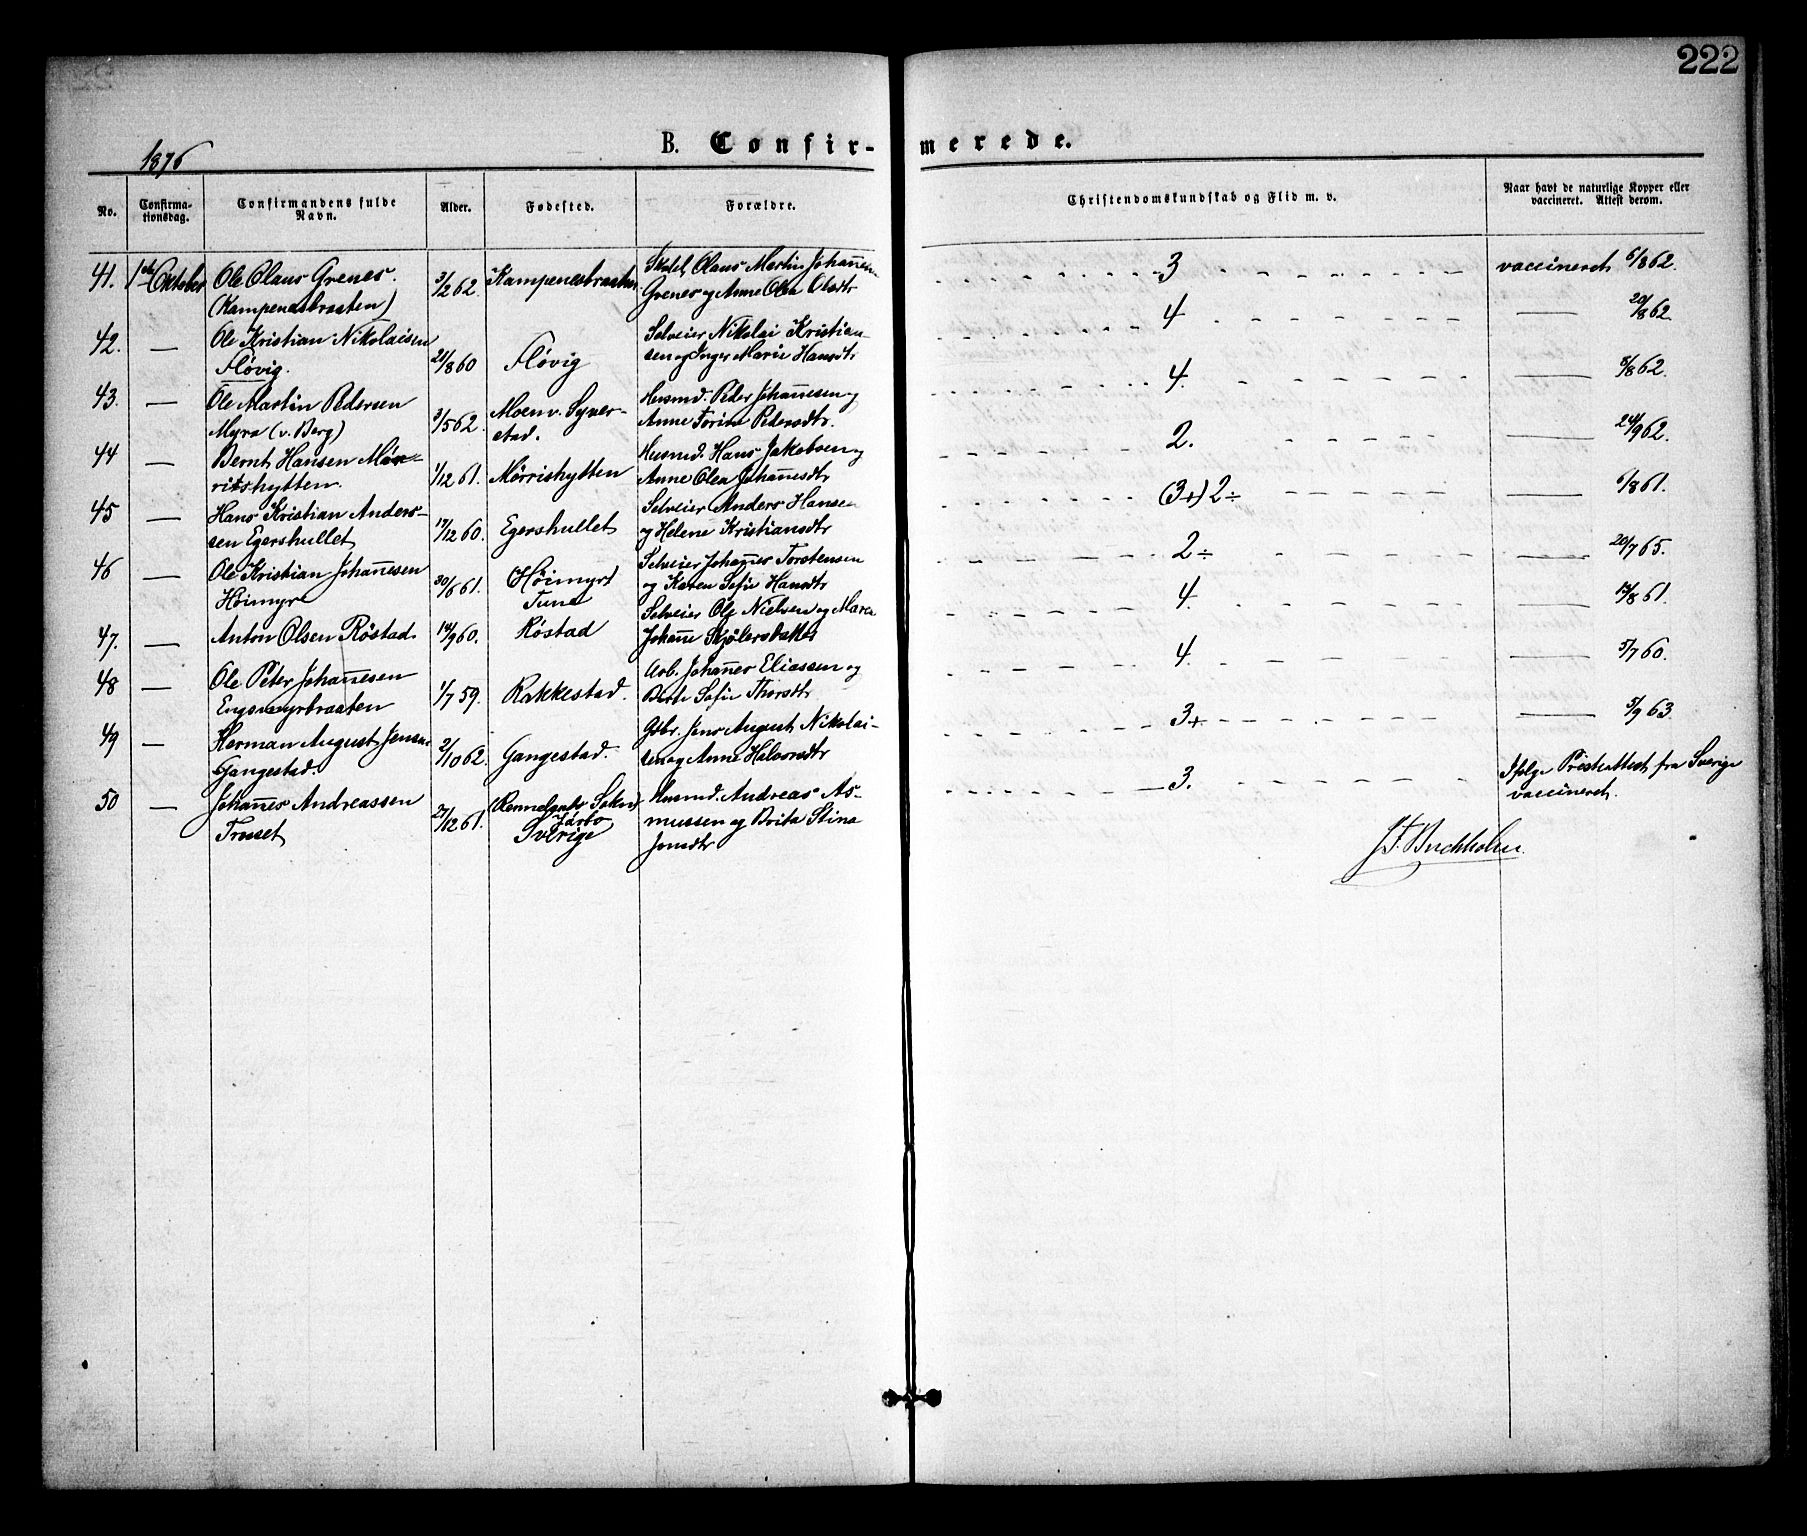 222
B. Confir- merede.
1876
No. Confirma- Confirmandens fulde Alder. Fødested. Forældre. Christendomskundskab og Flid m. v. Naar havt de naturlige Kopper eller
tionsdag. Navn. vaccineret. Attest derom.
41. 1ste Oktober Ole Olaus Grenes. 3/2 62. Kampenesbraaten Olaus Martin Johannesen 3 vaccineret 6/8 62.
(Kampenesbraaten) Grenes og Anne Olea Olsdtr
42. — Ole Kristian Nikolaisen 21/8 60 Fløvig Selveier Nikolai Kristian- 4 — 20/8 62.
Fløvig. sen og Inger Marie Hansdtr
43. — Ole Martin Pedersen 3/5 62. Moen v. Syver- Husmd. Peder Johannesen og 4. — 8/8 62.
Myra (v. Berg) stad. Anne Torine Pedersdtr.
44 — Bernt Hansen Mør- 1/12 61. Mørrishytten Husmd. Hans Jakobsen og 2. — 24/9 62.
rishytten. Anne Olea Johannesdtr
45 — Hans Kristian Anders- 17/12 60. Egershullet Selveier Anders Hansen (3+) 2÷ — 6/8 61.
sen Egershullet og Helene Kristiansdtr
46 — Ole Kristian Johannesen 30/6 61. Høimyr Selveier Johannes Torstensen 2÷ — 20/7 65.
Høimyr Tune og Karen Sofie Hansdtr
47. — Anton Olsen Røstad. 14/9 60. Røstad Selveier Ole Nielsen og Maren 4. — 17/8 61.
Johanne
48 — Ole Peter Johannesen 1/7 59. Rakkestad. Arb. Johannes Eliassen og 4. — 5/7 60.
Engsmyrbraaten Berte Sofie Thorsdtr
49 — Herman August Jensen 2/10 62. Gangestad. Gbr. Jens August Nikolai- 3+ — 5/9 63.
Gangestad. sen og Anne Halvorsdtr
50 — Johannes Andreassen 27/12 61. Husmd. Andreas As- 3. Ifølge Presteattest fra Sverige
Tresset Järbo Sverige mussen og Brita Stina vaccineret.
Jonsdtr
J. F. Buchholm.